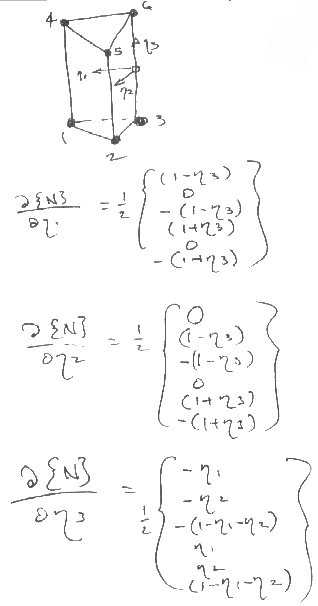 4 6
5 η3
η1
η2
1 3
2
∂{N}/∂η1 = 1/2 { (1-η3)
0
-(1-η3)
(1+η3)
0
-(1+η3) }
∂{N}/∂η2 = 1/2 { 0
(1-η3)
-(1-η3)
0
(1+η3)
-(1+η3) }
∂{N}/∂η3 = 1/2 { -η1
-η2
-(1-η1-η2)
η1
η2
(1-η1-η2) }